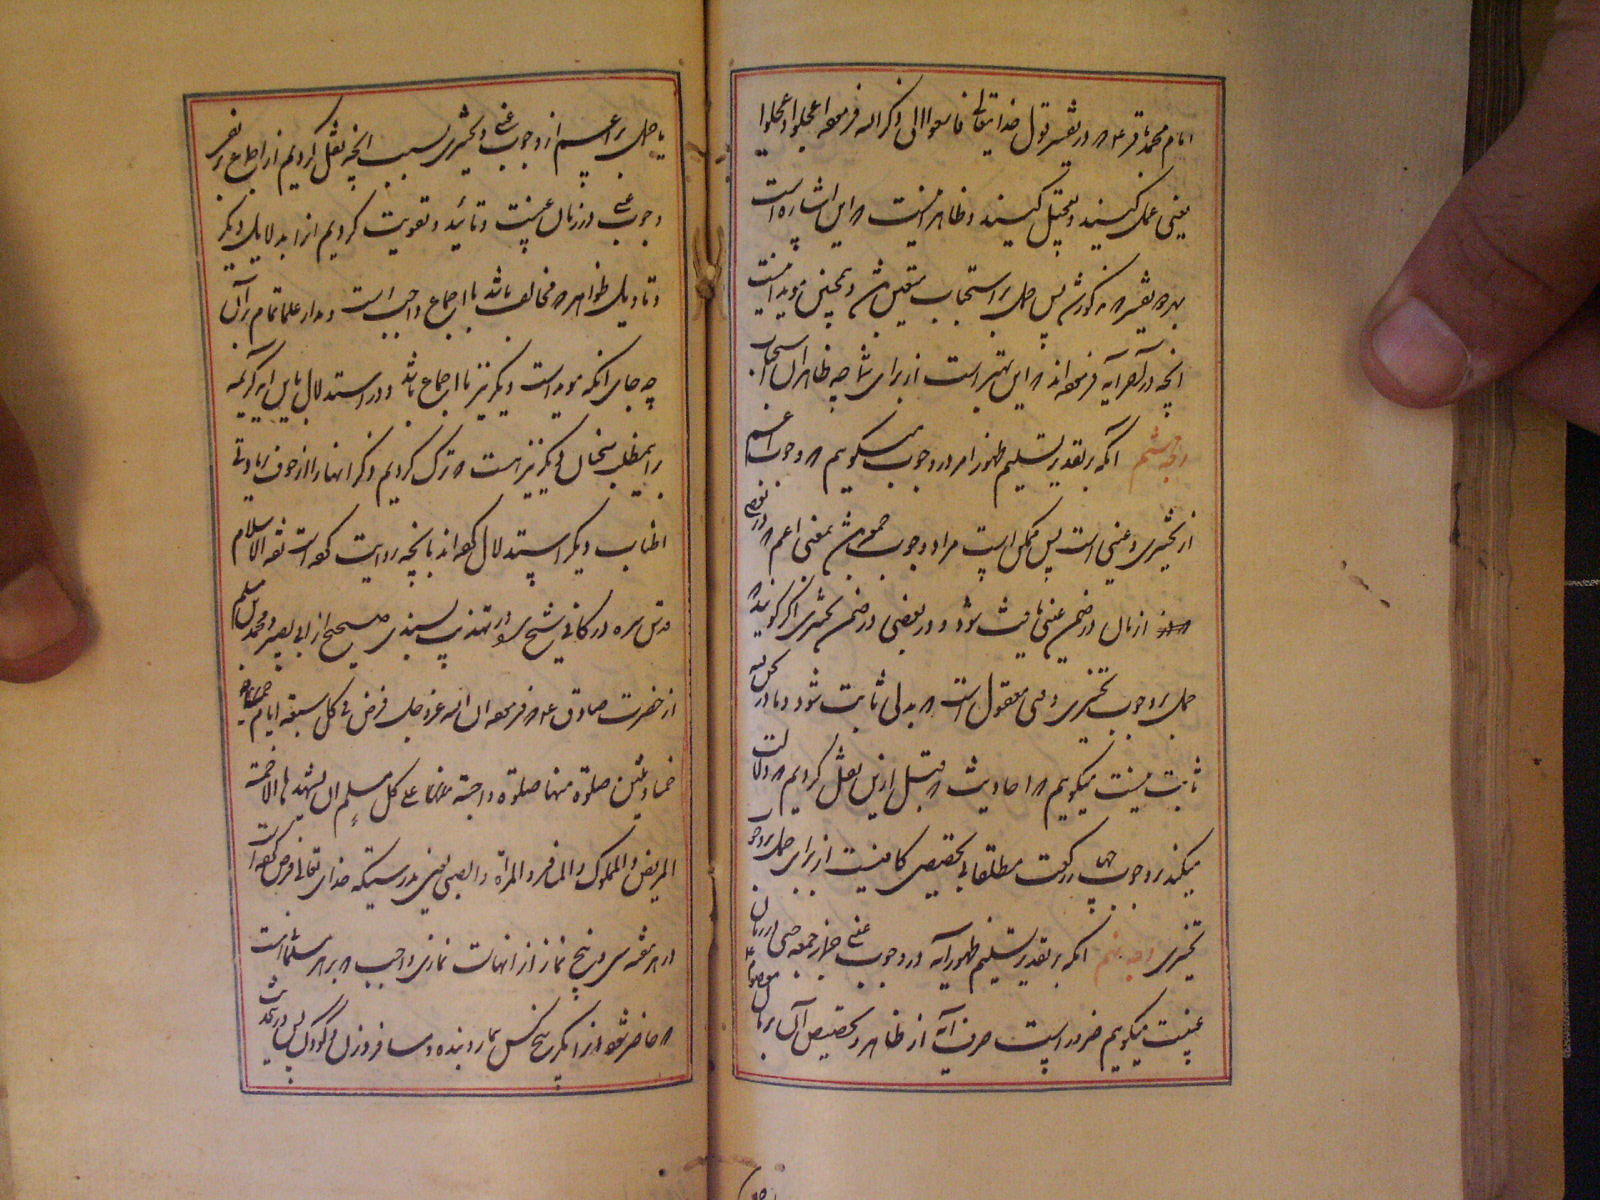 امام محمد باقر ع که در تفسیر قول خدایتعالی فاسعوا الی ذکر الله فرموده اعملوا و عجلوا
یعنی عمل کنید و تعجیل کنید و ظاهر اینست که این اشاره است
بهر دو تفسیر که مذکور شد پس حمل بر استحباب متعین شد و همچنین موید اینست
آنچه در آخر آیه فرموده اند که این بهتر است از برای شما چه ظاهر آن استحباب
وجه ششم آنکه بر تقدیر تسلیم ظهور امر در وجوب میگوییم که وجوب اعم
از تخییری و عینی است پس ممکن است مراد وجوب جمعه باشد بمعنی اعم که در بعضی
از زمان در ضمن عینی یافت شود و در بعضی در ضمن تخییری اگر گویند که
حمل بر وجوب تخییری وقتی معقول است که بدلی ثابت شود و ما در محل
ثابت نیست میگوییم که احادیث که قبل ازین نقل کردیم که دلالت
میکند بر وجوب چهار رکعت مطلقا بی تخصیص کافیست از برای حمل بر وجوب
تخییری وجه هفتم آنکه بر تقدیر تسلیم ظهور آیه در وجوب عینی نماز جمعه حتی در زمان
غیبت میگوییم ضرور است صرف آیه از ظاهر و تخصیص آن بزمان معصوم ع
یا حمل بر اعم از وجوب عینی و تخییری بسبب آنچه نقل کردیم از اجماع بر نفی
وجوب عینی در زمان غیبت و تائید و تقویت کردیم آنرا بدلایل دیگر
و تاویل ظواهر که مخالف باشد با اجماع واجب است و مدار علما تمام بر آن
چه جای آنکه موید است دیگر نیز با اجماع باشد و در استدلال باین آیه کریمه
برین مطلب سخنان دیگر نیز هست که ترک کردیم ذکر آنها را از خوف زیادتی
اطناب و دیگر استدلال کرده اند بآنچه روایت کرده است ثقة الاسلام
قدس سره در کافی و شیخ در تهذیب بسندی صحیح از ابی بصیر و محمد بن مسلم
از حضرت صادق ع که فرموده ان الله عز و جل فرض فی کل سبعة ایام خمسا
و ثلثین صلوة منها صلوة واجبة علی کل مسلم ان یشهدها الا خمسة
المریض و المملوک و المسافر و المرأة و الصبی یعنی بدرستیکه خدای تعالی فرض کرده است
در هر هفته سی و پنج نماز از آنهاست نمازی واجب که بر هر مسلمانست
که حاضر شود او را مگر پنج کس بیمار و بنده و مسافر و زن و کودک پس در حدیث